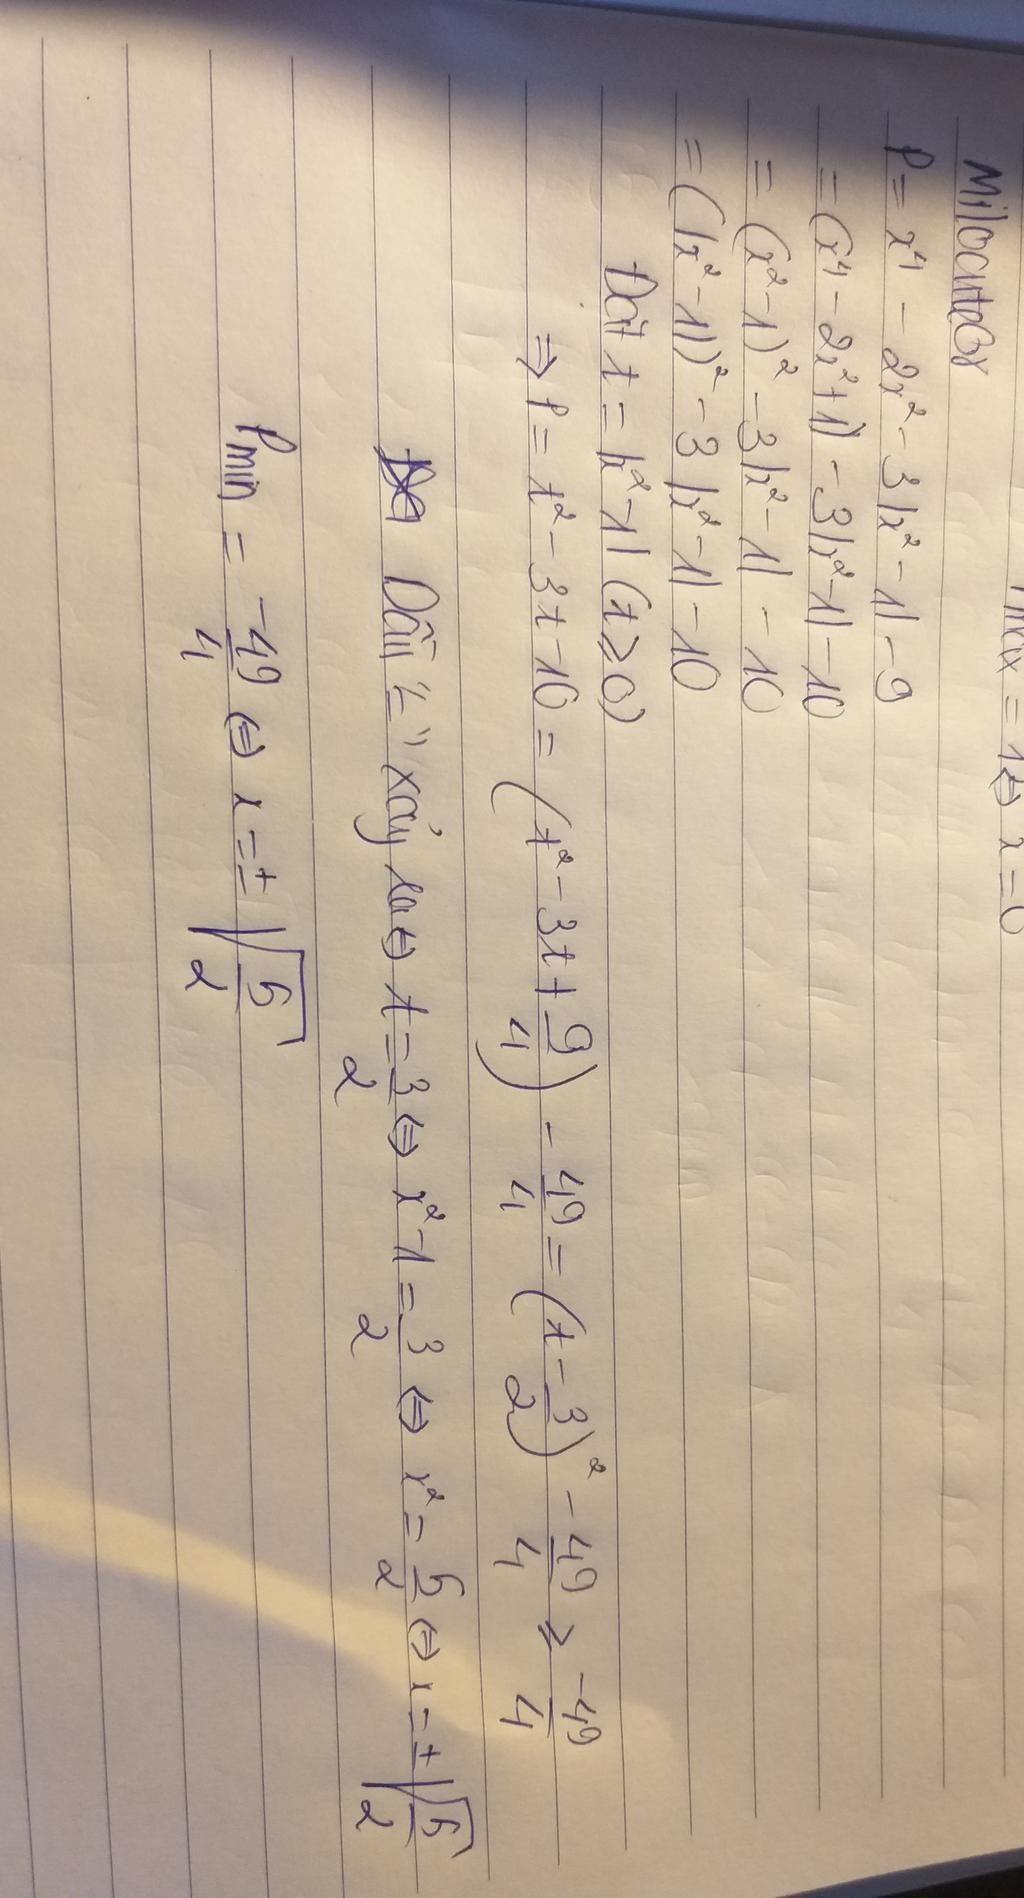 max = 1 ⇔ x = 0
Milocuteqy
P = x⁴ - 2x² - 3|x² - 1| - 9
= (x⁴ - 2x² + 1) - 3|x² - 1| - 10
= (x² - 1)² - 3|x² - 1| - 10
= (|x² - 1|)² - 3|x² - 1| - 10
Đặt t = |x² - 1| (t ≥ 0)
⇒ P = t² - 3t - 10 = (t² - 3t + 9/4) - 49/4 = (t - 3/2)² - 49/4 ≥ -49/4
Dấu "=" xảy ra ⇔ t = 3/2 ⇔ x² - 1 = 3/2 ⇔ x² = 5/2 ⇔ x = ± √(5/2)
Pmin = -49/4 ⇔ x = ± √(5/2)